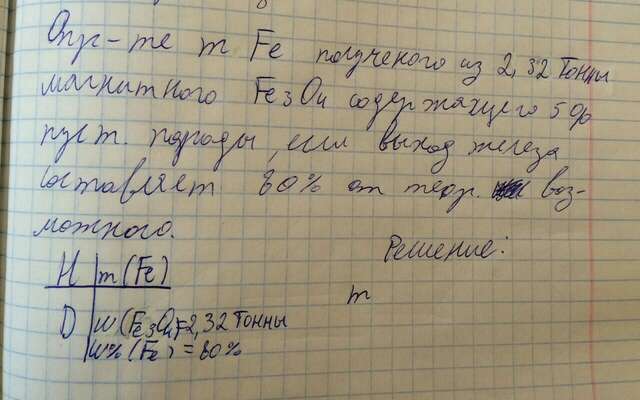 Опр-те m Fe полученого из 2,32 тонны
магнитного Fe3O4 содержащего 5%
пуст. породы, если выход железа
составляет 80% от теор. воз-
можного.
Решение:
Н m(Fe)
m
D w(Fe3O4)=2,32 тонны
w%(Fe)=80%